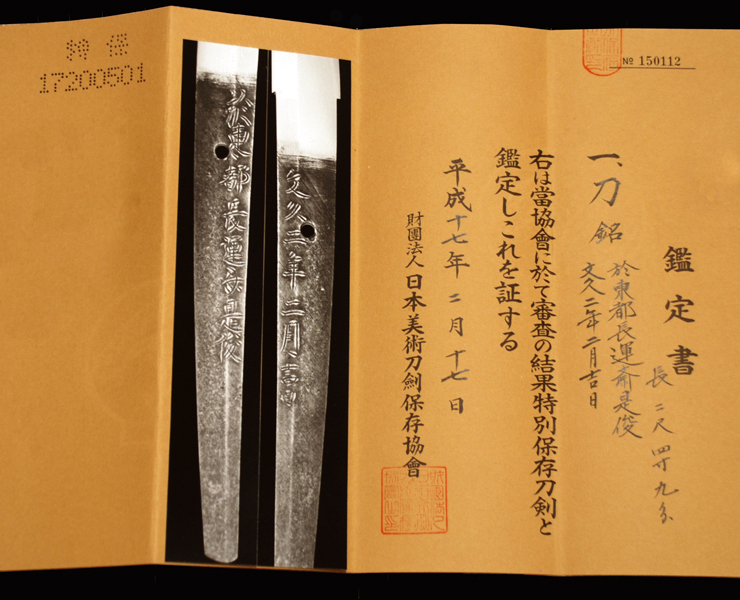 № 150112
鑑定書
一、刀 銘
於東都長運斎是俊
文久二年二月吉日
長二尺四寸九分
右は當協會に於て審査の結果特別保存刀剣と
鑑定しこれを証する
平成十七年二月十七日
財團法人日本美術刀劍保存協會
於東都長運斎是俊
文久二年二月吉日
特保
17200501